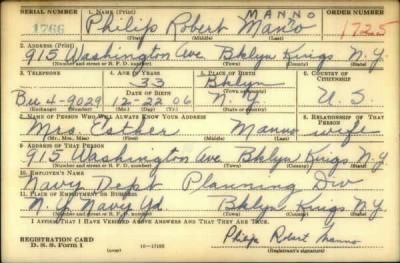 SERIAL NUMBER 1. NAME (Print) ORDER NUMBER
1766 Philip Robert Manno MANNO 1725
(First) (Middle) (Last)
2. ADDRESS (Print)
915 Washington Ave Bklyn Kings N.Y.
(Number and street or R. F. D. number) (Town) (County) (State)
3. TELEPHONE 4. AGE IN YEARS 5. PLACE OF BIRTH 6. COUNTRY OF CITIZENSHIP
33 Bklyn
DATE OF BIRTH (Town or county)
Bu 4-9029 12-22-06 N.Y. U.S.
(Exchange) (Number) (Mo.) (Day) (Yr.) (State or country)
7. NAME OF PERSON WHO WILL ALWAYS KNOW YOUR ADDRESS 8. RELATIONSHIP OF THAT PERSON
Mrs. Esther Manno wife
(Mr., Mrs., Miss) (First) (Middle) (Last)
9. ADDRESS OF THAT PERSON
915 Washington Ave Bklyn Kings N.Y.
(Number and street or R. F. D. number) (Town) (County) (State)
10. EMPLOYER'S NAME
Navy Dept Planning Div
11. PLACE OF EMPLOYMENT OR BUSINESS
N.Y. Navy Yd. Bklyn Kings N.Y.
(Number and street or R. F. D. number) (Town) (County) (State)
I AFFIRM THAT I HAVE VERIFIED ABOVE ANSWERS AND THAT THEY ARE TRUE.
REGISTRATION CARD
D. S. S. Form 1 (over) 16-17105 Philip Robert Manno
(Registrant's signature)